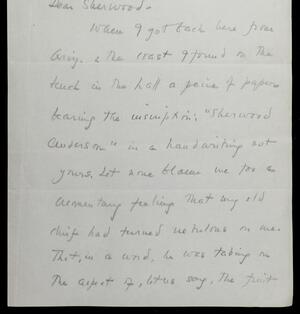 Dear Sherwood -
When I got back here from
& the coast I found on the
in the hall a of paper
bearing the inscription: "Sherwood
Anderson" in a handwriting not
yours. Let none blame me too
momentary feeling that my old
had turned on me.
That, in a word, he was taking on
The aspect of, let us say, The first